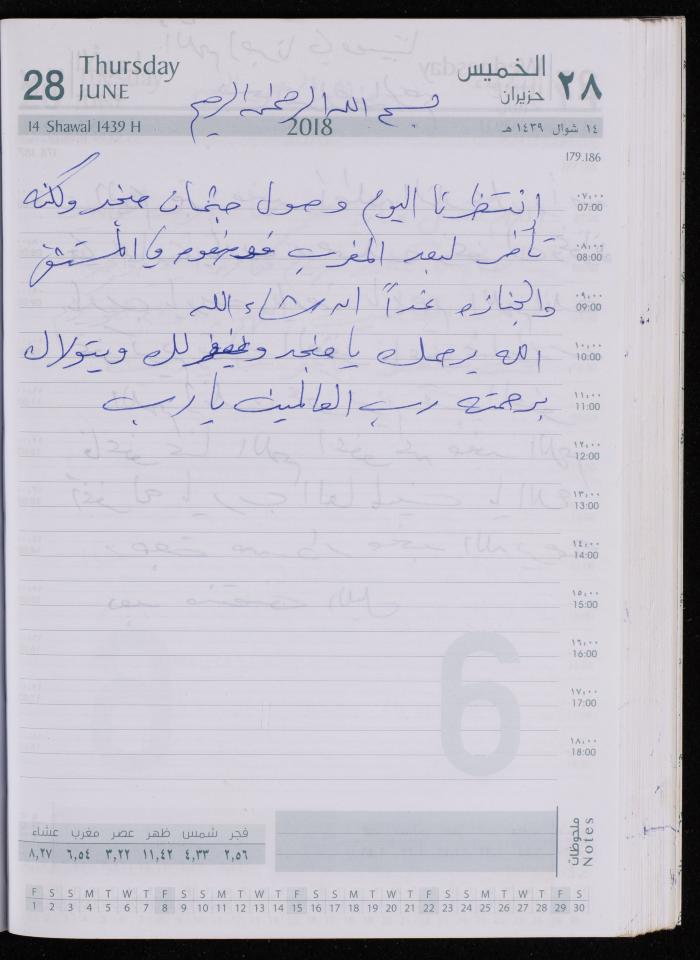 28 Thursday JUNE الخميس حزيران ٢٨
بسم الله الرحمن الرحيم
14 Shawal 1439 H 2018 ١٤ شوال ١٤٣٩ هـ
179.186
انتظرنا اليوم وصول جثمان منجد ولكنه
٠٧,٠٠ 07:00
تأخر لبعد المغرب في المستشفى
٠٨,٠٠ 08:00
والجنازه غداً ان شاء الله
٠٩,٠٠ 09:00
الله يرحمك يا منجد ويغفر لك ويتولاك
١٠,٠٠ 10:00
برحمته رب العالمين يا رب
١١,٠٠ 11:00
١٢,٠٠ 12:00
١٣,٠٠ 13:00
١٤,٠٠ 14:00
١٥,٠٠ 15:00
١٦,٠٠ 16:00
١٧,٠٠ 17:00
١٨,٠٠ 18:00
6
ملحوظات Notes
فجر شمس ظهر عصر مغرب عشاء
٢,٥٦ ٤,٣٣ ١١,٤٢ ٣,٢٢ ٦,٥٤ ٨,٢٧
F S S M T W T F S S M T W T F S S M T W T F S S M T W T F S
1 2 3 4 5 6 7 8 9 10 11 12 13 14 15 16 17 18 19 20 21 22 23 24 25 26 27 28 29 30